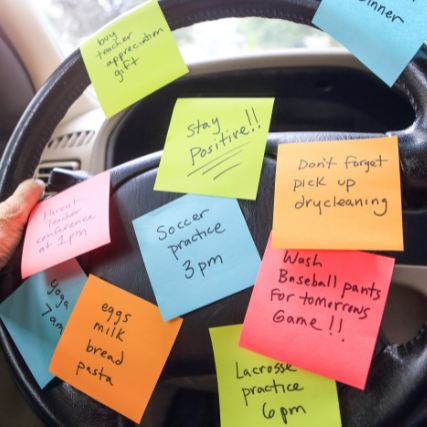 buy
teacher
appreciation
gift
Dinner
Stay
Positive!!
Don't forget
pick up
drycleaning
Parent
Teacher
conference
at 1pm
Soccer
practice
3pm
Wash
Baseball pants
for tomorrows
Game!!
Yoga
7am
eggs
milk
bread
pasta
Lacrosse
practice
6pm